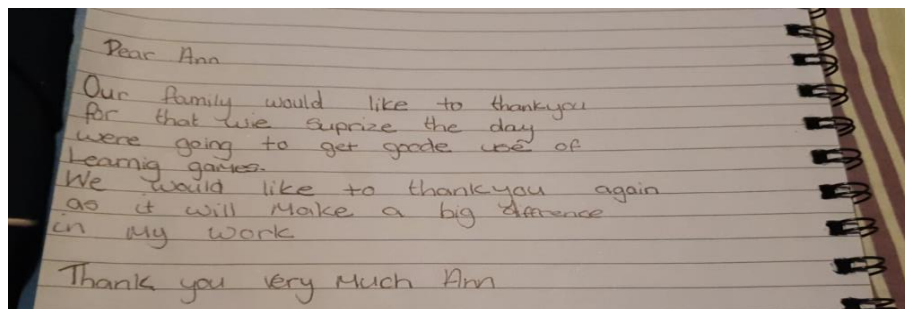 Dear Ann
Our family would like to thankyou
for that wie suprize the day
were going to get goode use of
Learnig games.
We would like to thankyou again
as it will Make a big dfference
in My work
Thank you very Much Ann